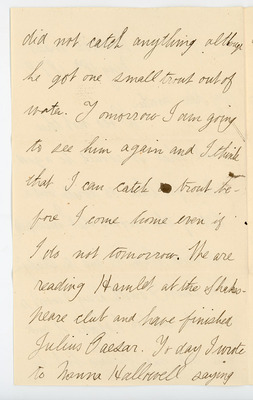 did not catch anything although
he got one small trout out of
water. Tomorrow I am going
to see him again and I think
that I can catch trout be-
fore I come home even if
I do not tomorrow. We are
reading Hamlet at the Shaks-
peare club and have finished
Julius Caesar. To day I wrote
to Nanna Halliwell saying